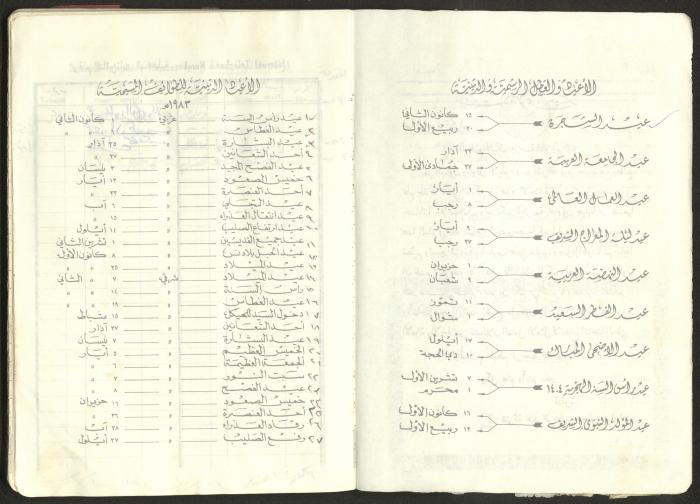 الأعياد والعطل الرسمية والدينية
عيد الشجرة
١٥ كانون الثاني
٣٠ ربيع الأول
عيد الجامعة العربية
٢٢ آذار
٧ جمادى الأولى
عيد العمال العالمي
١ أيار
٨ رجب
عيد ليلة المعراج الشريف
٩ أيار
٢٧ رجب
عيد النهضة العربية
١ حزيران
٩ شعبان
عيد الفطر السعيد
١١ تموز
١ شوال
عيد الأضحى المبارك
١٧ أيلول
١٠ ذي الحجة
عيد رأس السنة الهجرية ١٤٠٤
٧ تشرين الأول
١ محرم
عيد المولد النبوي الشريف
١٦ كانون الأول
١٢ ربيع الأول
الأعياد الدينية للطوائف المسيحية
١٩٨٣م
١ عيد رأس السنة غربي ١ كانون الثاني
٢ عيد الغطاس " ٦ "
٣ عيد البشارة " ٢٥ آذار
٤ أحد الشعانين " ٢٧ "
٥ عيد الفصح المجيد " ٣ نيسان
٦ خميس الصعود " ١٢ أيار
٧ أحد العنصرة " ٢٢ "
٨ عيد التجلي " ٦ آب
٩ عيد انتقال العذراء " ١٥ "
١٠ عيد ارتفاع الصليب " ١٤ أيلول
١١ عيد جميع القديسين " ١ تشرين الثاني
١٢ عيد الحبل بلا دنس " ٨ كانون الأول
١٣ عيد الميلاد " ٢٥ "
١٤ عيد الميلاد شرقي ٧ " الثاني
١٥ رأس السنة " ١٤ "
١٦ عيد الغطاس " ١٩ "
١٧ دخول السيد للهيكل " ١٥ شباط
١٨ أحد الشعانين "
١٩ عيد البشارة " ٧ نيسان
٢٠ الخميس العظيم " ٥ أيار
٢١ الجمعة العظيمة " ٦ "
٢٢ سبت النور " ٧ "
٢٣ عيد الفصح " ٨ "
٢٤ خميس الصعود " ١٦ حزيران
٢٥ أحد العنصرة " ٢٦ "
٢٦ رقاد العذراء " ٢٨ آب
٢٧ رفع الصليب " ٢٧ أيلول